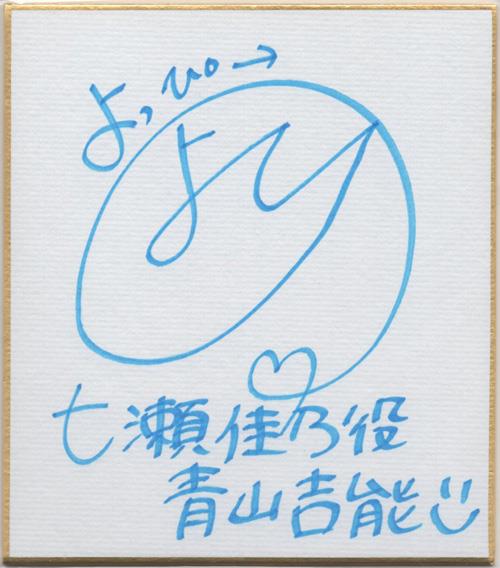 よっぴ→
よしの
七瀬佳乃役
青山吉能